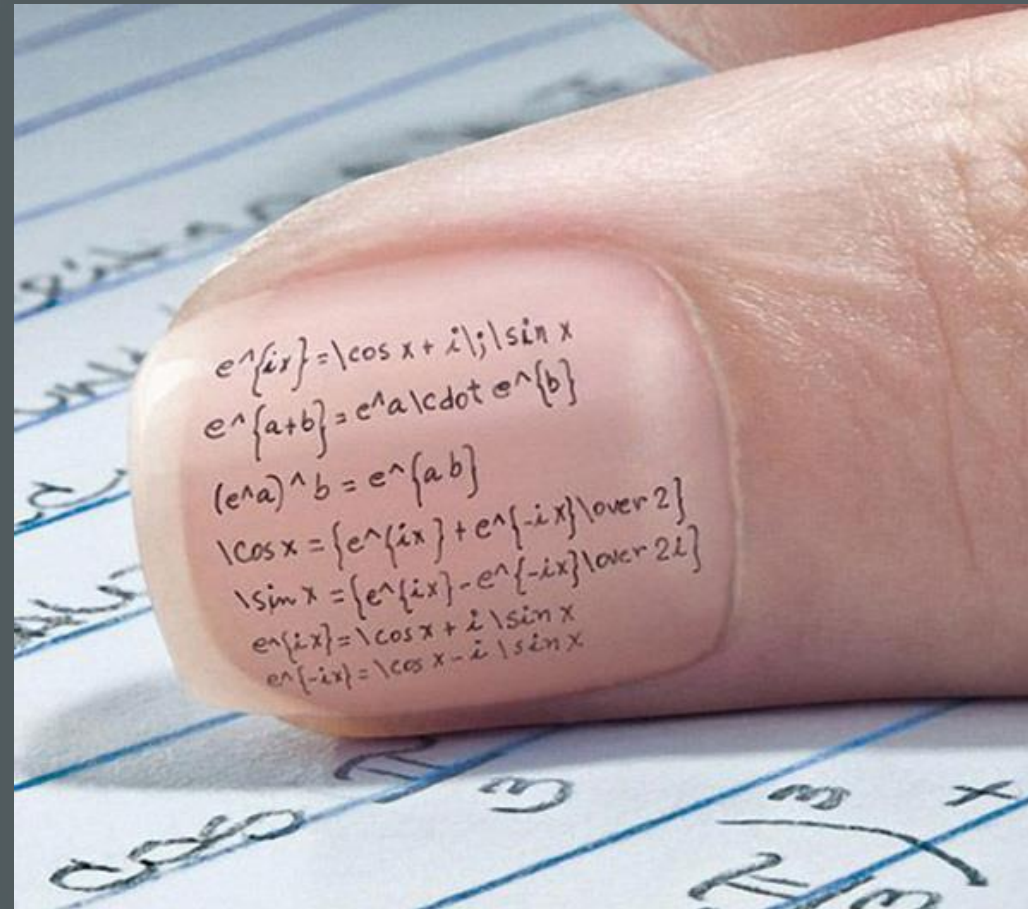 e^{ix}=\cos x + i\;\sin x
e^{a+b}=e^a\cdot e^{b}
(e^a)^b = e^{ab}
\cos x = {e^{ix} + e^{-ix}\over 2}
\sin x = {e^{ix} - e^{-ix}\over 2i}
e^{ix}=\cos x + i \sin x
e^{-ix}=\cos x - i \sin x
cos π
3